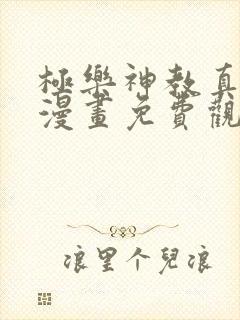 極樂神教真
漫畫免費觀
浪里个兒浪